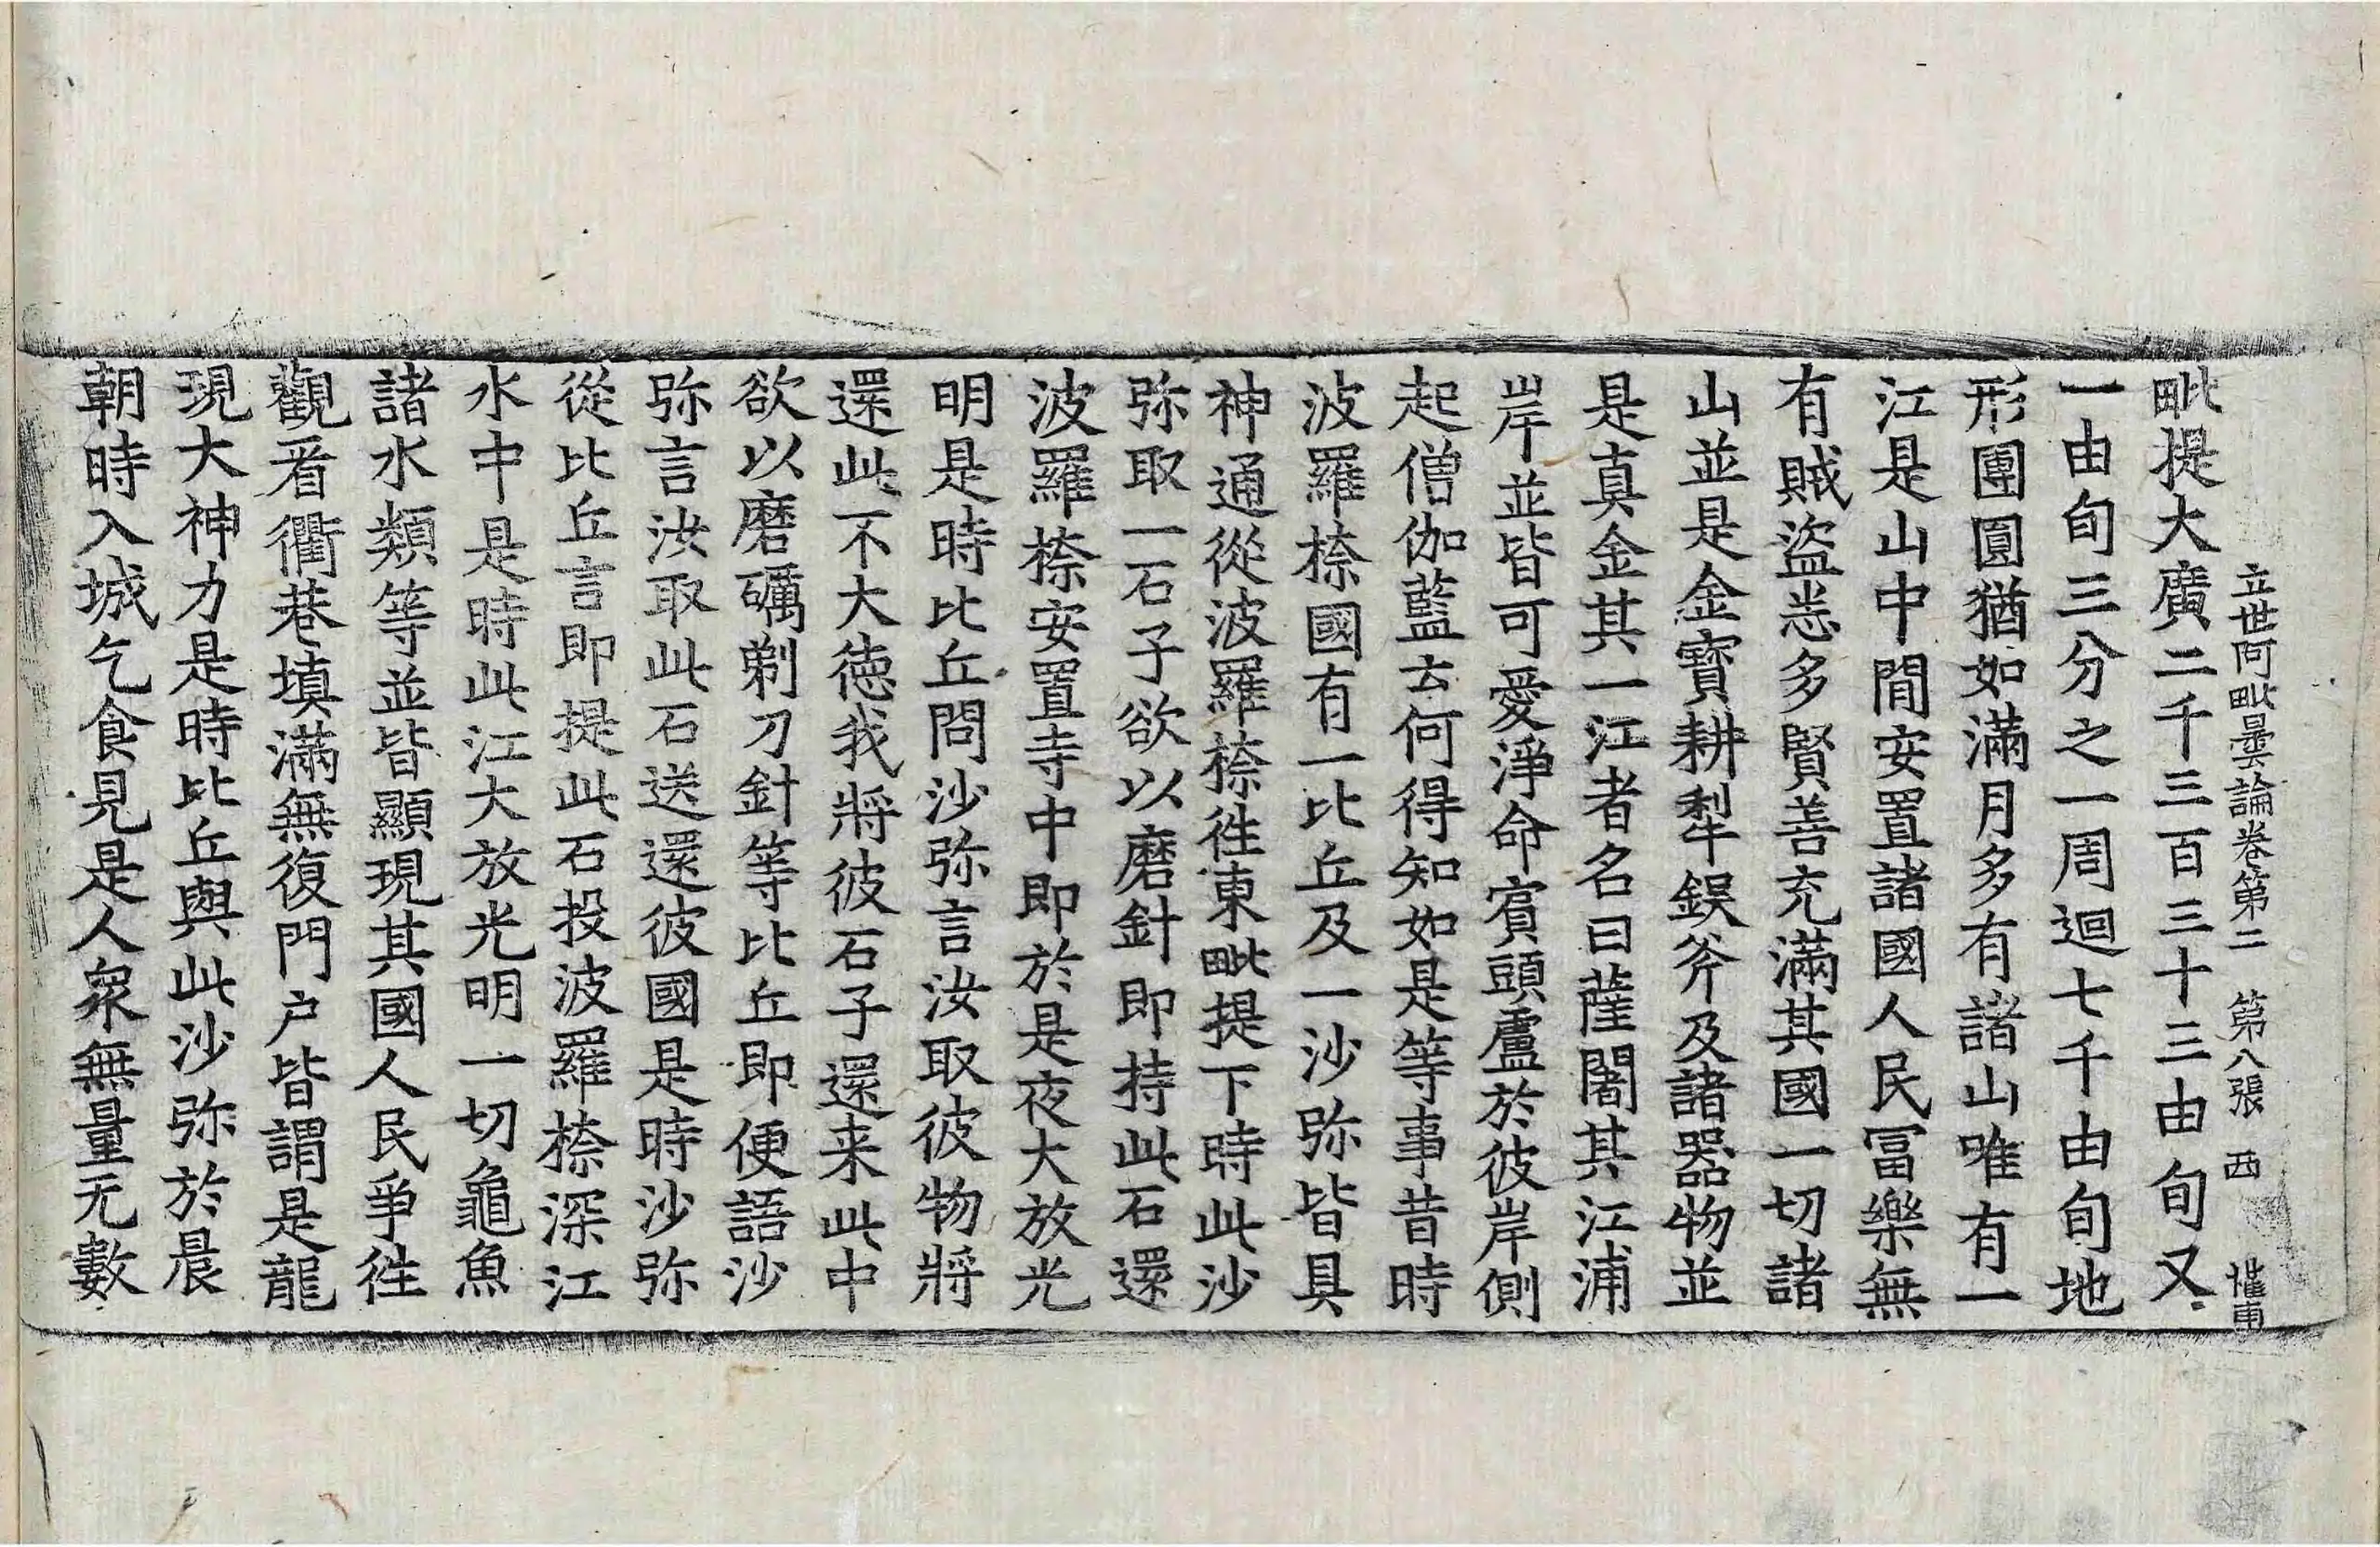 立世阿毗曇論卷第二 第八張 西
毗提大廣二千三百三十三由旬又
一由旬三分之一周迴七千由旬地
形團圓猶如滿月多有諸山唯有一
江是山中閒安置諸國人民冨樂無
有賊盜㤪多賢善充滿其國一切諸
山並是金寶耕犁鋘斧及諸器物並
是真金其一江者名曰薩闍其江浦
岸並皆可愛淨命賔頭盧於彼岸側
起僧伽藍云何得知如是等事昔時
波羅㮈國有一比丘及一沙弥皆具
神通從波羅㮈徃東毗提下時此沙
弥取一石子欲以磨針即持此石還
波羅㮈安置寺中即於是夜大放光
明是時比丘問沙弥言汝取彼物將
還此不大徳我將彼石子還来此中
欲以磨礪剃刀針等比丘即便語沙
弥言汝取此石送還彼國是時沙弥
從比丘言即提此石投波羅㮈深江
水中是時此江大放光明一切龜魚
諸水類等並皆顯現其國人民爭徃
觀看衢巷填滿無復門户皆謂是龍
現大神力是時比丘與此沙弥於晨
朝時入城乞食見是人衆無量无數